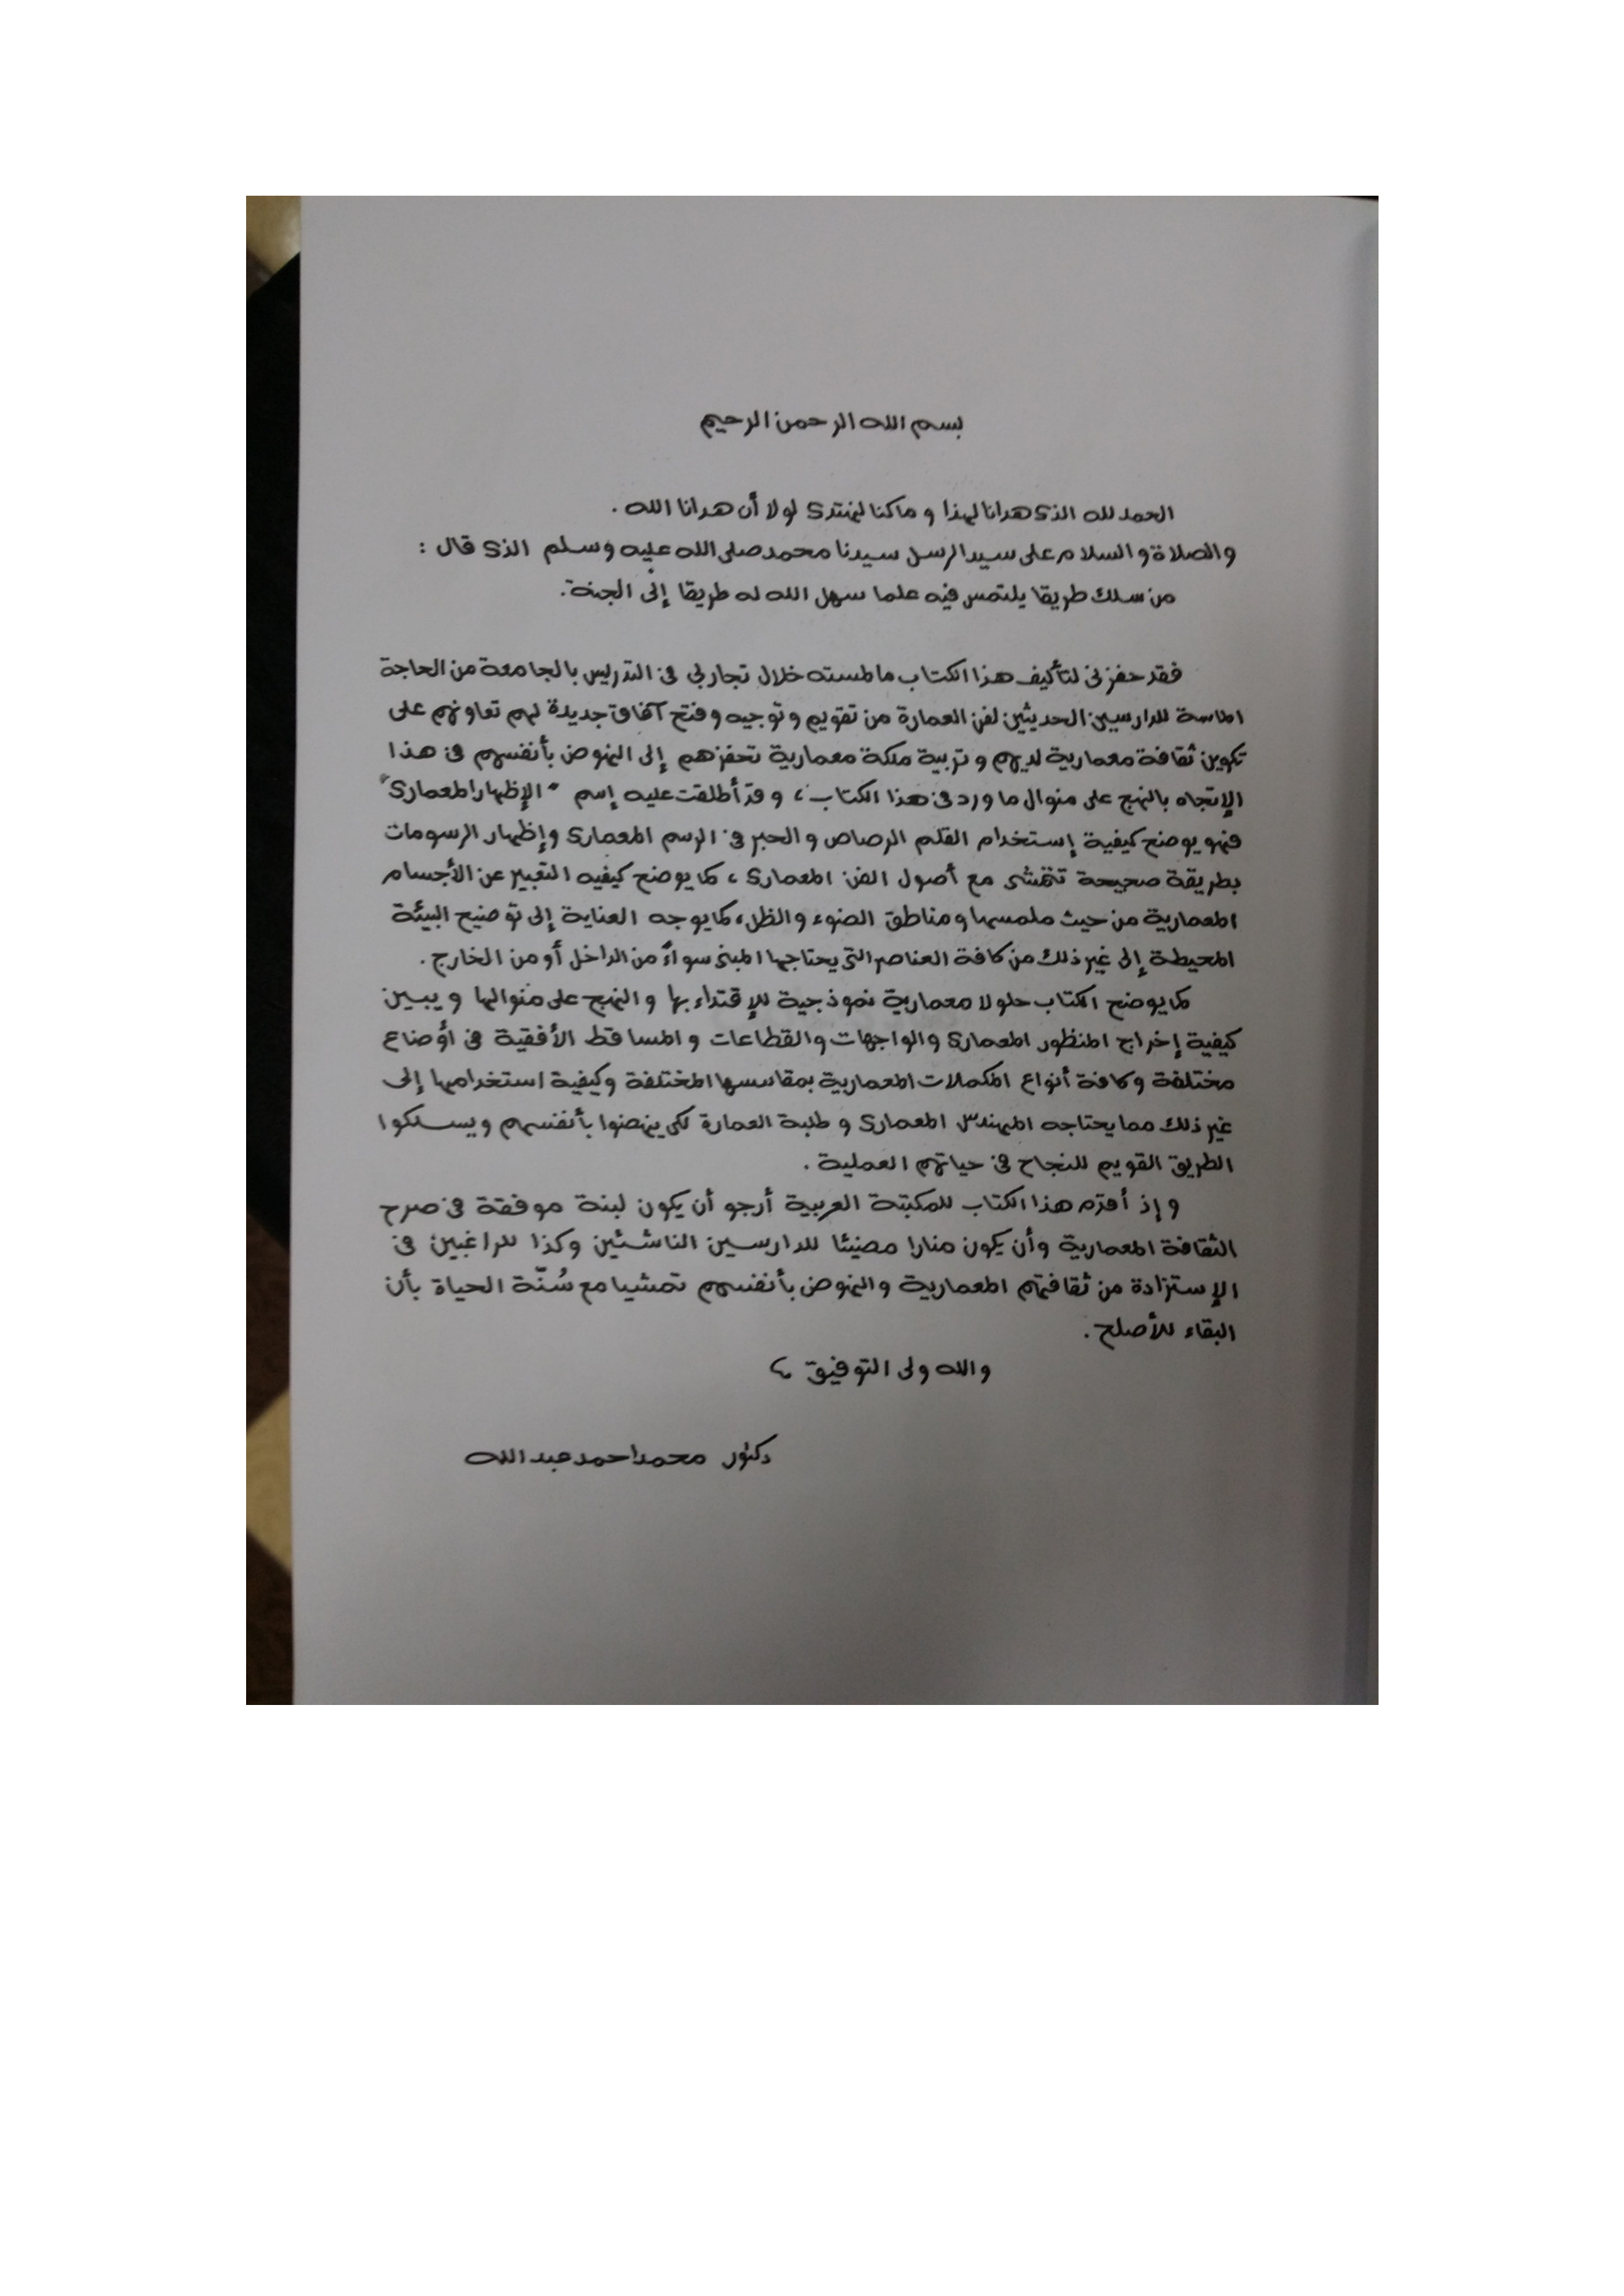 بسم الله الرحمن الرحيم
الحمد لله الذى هدانا لهذا و ما كنا لنهتدى لولا أن هدانا الله .
والصلاة و السلام على سيد الرسل سيدنا محمد صلى الله عليه وسلم الذى قال :
من سلك طريقا يلتمس فيه علما سهل الله له طريقا إلى الجنة.
فقد حفزنى لتأليف هذا الكتاب ما لمسته خلال تجاربى فى التدريس بالجامعة من الحاجة
الماسة للدارسين الحديثين لفن العمارة من تقويم وتوجيه وفتح آفاق جديدة لهم تعاونهم على
تكوين ثقافة معمارية لديهم و تربية ملكة معمارية تحفزهم إلى النهوض بأنفسهم فى هذا
الإتجاه بالنهج على منوال ما ورد فى هذا الكتاب ، و قد أطلقت عليه إسم " الإظهار المعمارى "
فهو يوضح كيفية إستخدام القلم الرصاص و الحبر فى الرسم المعمارى وإظهار الرسومات
بطريقة صحيحة تتمشى مع أصول الفن المعمارى ، كما يوضح كيفيه التعبير عن الأجسام
المعمارية من حيث ملمسها و مناطق الضوء والظل ، كما يوجه العناية إلى توضيح البيئة
المحيطة إلى غير ذلك من كافة العناصر التى يحتاجها المبنى سواءً من الداخل أو من الخارج .
كما يوضح الكتاب حلولا معمارية نموذجية للإقتداء بها و النهج على منوالها و يبين
كيفية إخراج المنظور المعمارى والواجهات والقطاعات و المساقط الأفقية فى أوضاع
مختلفة وكافة أنواع المكملات المعمارية بمقاسسها المختلفة وكيفية استخدامها إلى
غير ذلك مما يحتاجه المهندس المعمارى و طلبة العمارة لكى ينهضوا بأنفسهم ويسلكوا
الطريق القويم للنجاح فى حياتهم العملية .
و إذ أقدم هذا الكتاب للمكتبة العربية أرجو أن يكون لبنة موفقة فى صرح
الثقافة المعمارية وأن يكون منارا مضيئا للدارسين الناشئين وكذا للراغبين فى
الإستزادة من ثقافتهم المعمارية والنهوض بأنفسهم تمشيا مع سُنّة الحياة بأن
البقاء للأصلح .
والله ولى التوفيق ،
دكتور محمد احمد عبد الله